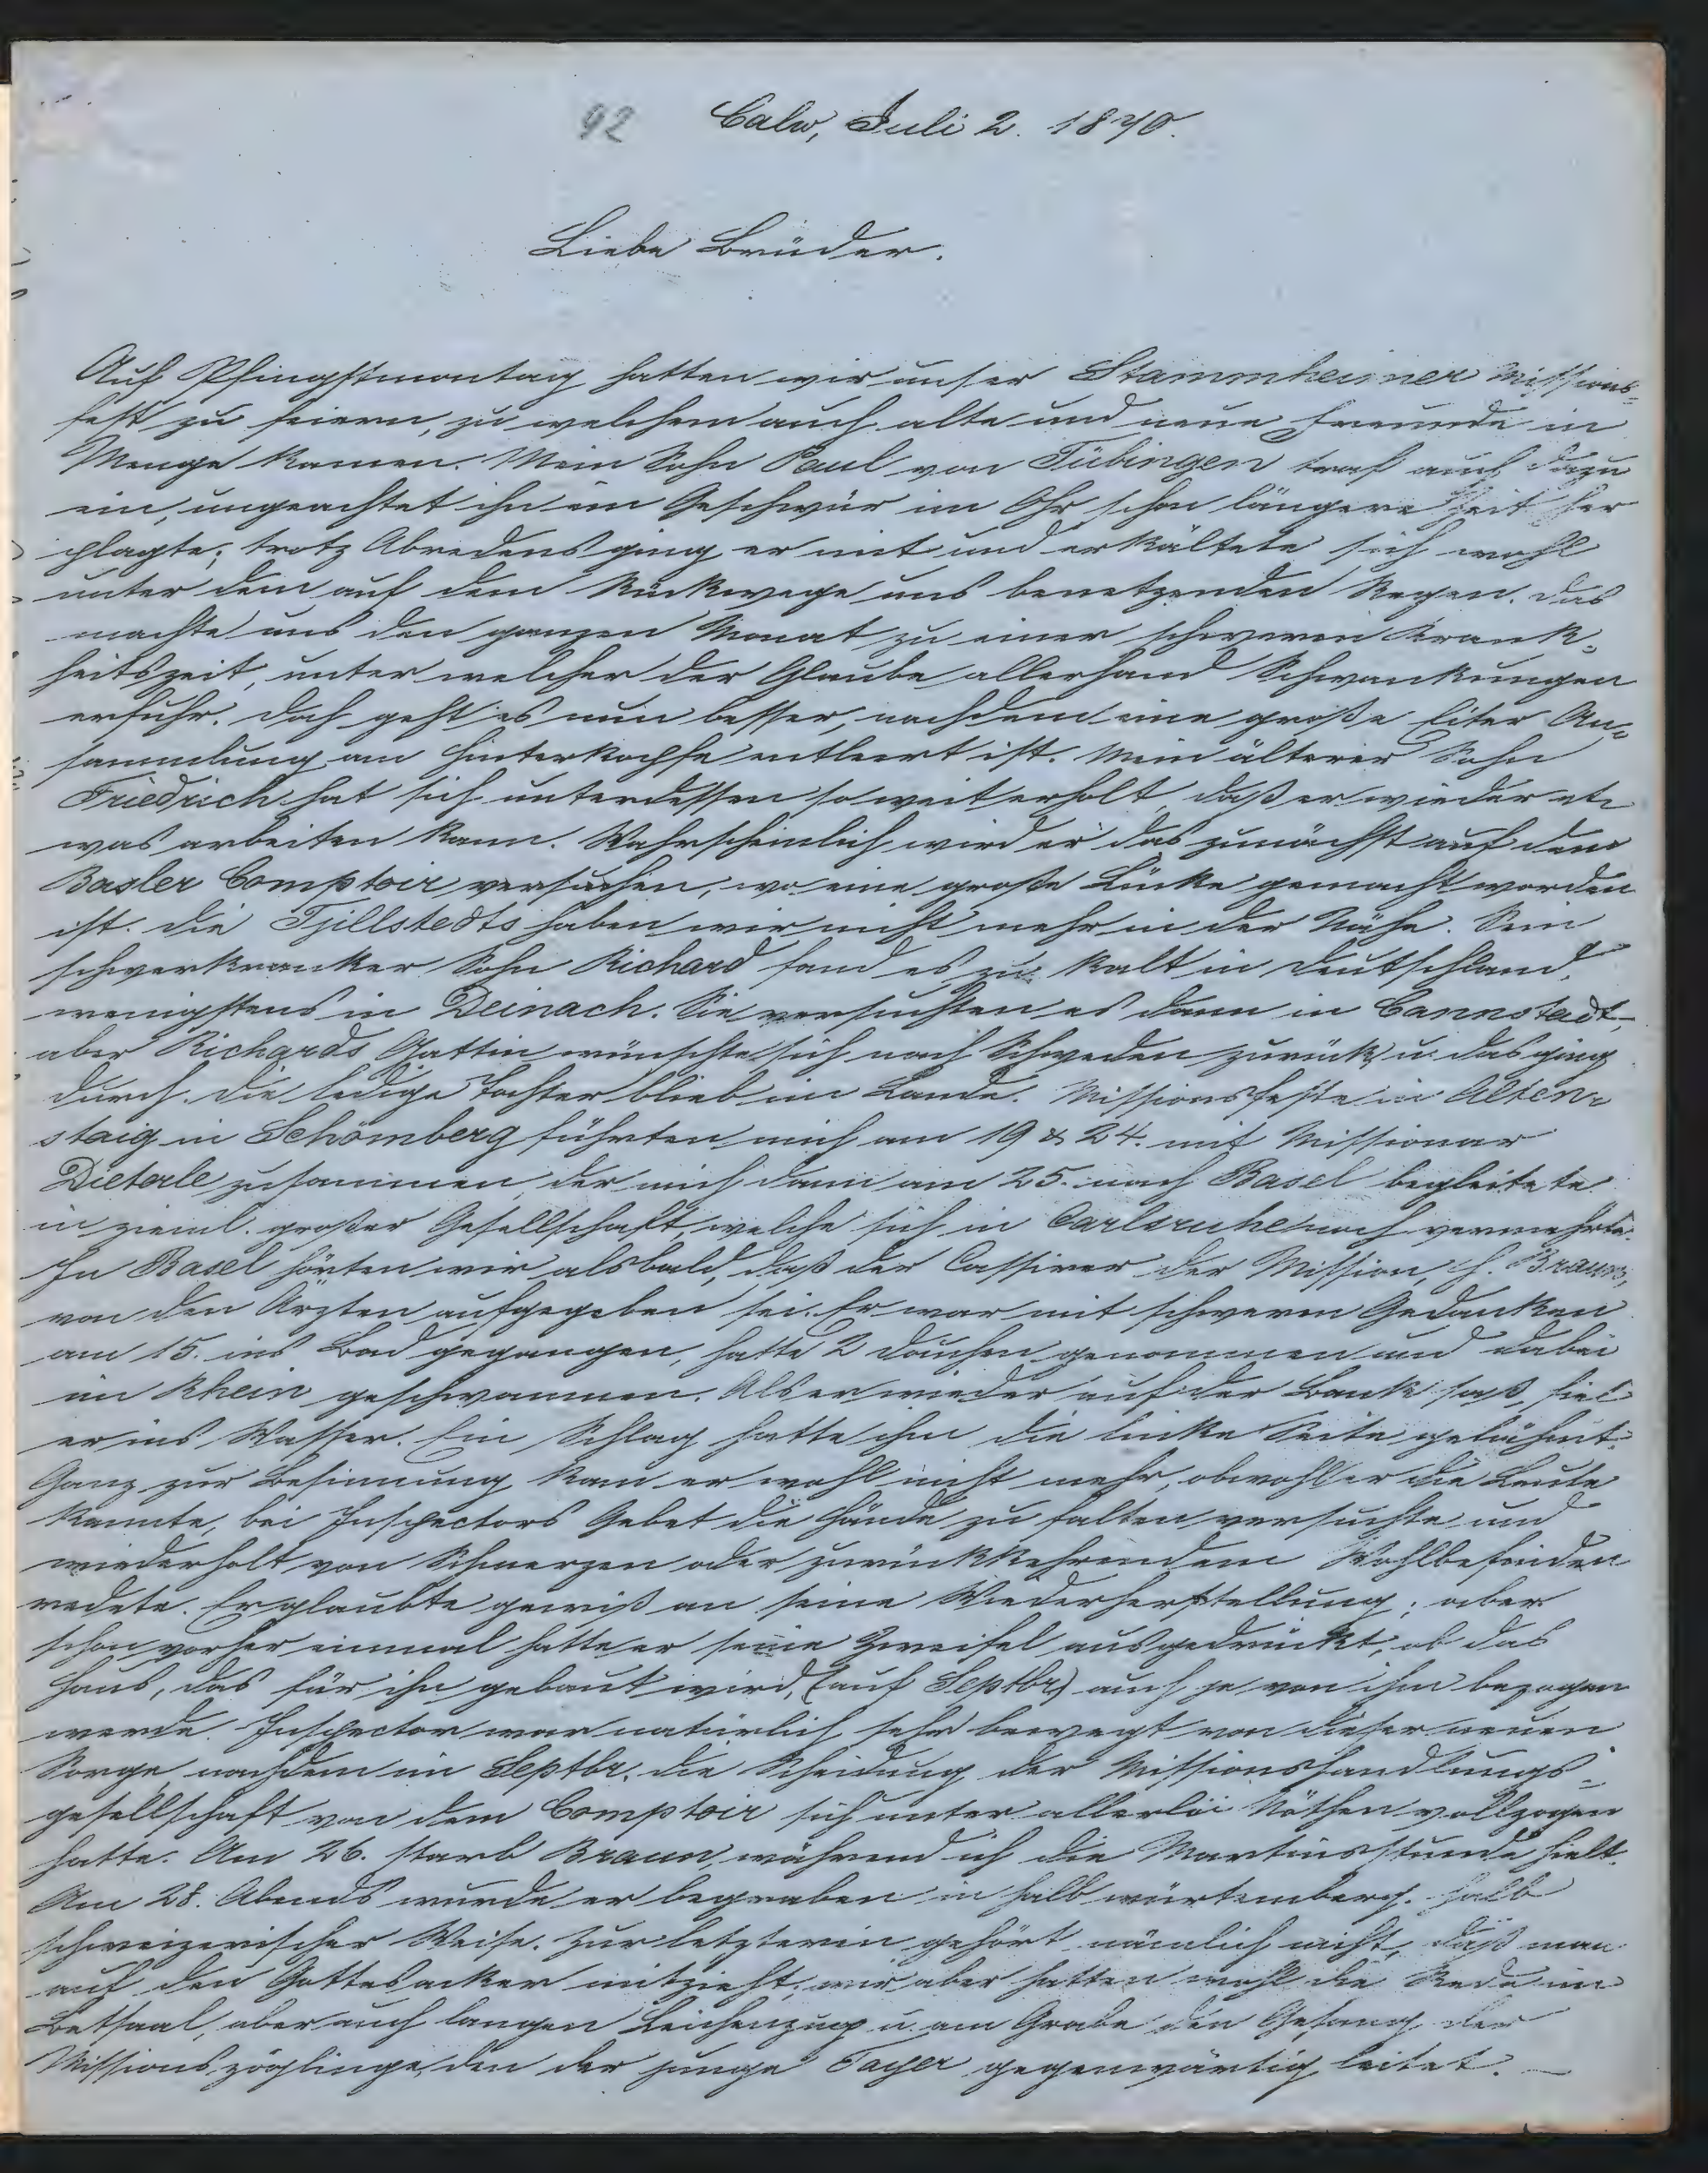 92 Calw, Juli 2. 1870.
Liebe Brüder.
Auf Pfingstmontag hatten wir unser Stammheimer Missions-
fest zu feiern, zu welchem auch alte und neue Freunde in
Menge kamen. Mein Sohn Paul von Tübingen traf auch dazu
ein, ungeachtet ihn ein Geschwür im Ohr schon längere Zeit her
plagte; trotz Abredens ging er mit und erkältete sich wohl
unter dem auf dem Rückwege uns benetzenden Regen. Das
machte uns den ganzen Monat zu einer schweren Krank-
heitszeit, unter welcher der Glaube allerhand Schwankungen
erfuhr. Doch geht es nun besser, nachdem eine große Eiter An-
sammlung am Hinterkopfe entleert ist. Mein älterer Sohn
Friedrich hat sich unterdessen so weit erholt, daß er wieder et-
was arbeiten kann. Wahrscheinlich wird er das zunächst auf dem
Basler Comptoir versuchen, wo eine große Lücke gemacht worden
ist. Die Fjellstedts haben wir nicht mehr in der Nähe. Sein
schwerkranker Sohn Richard fand es zu kalt in Deutschland,
wenigstens in Deinach. Sie versuchten es dann in Cannstadt,
aber Richards Gattin wünschte sich nach Schweden zurück u. das ging
durch. Die ledige Tochter blieb im Lande. Missionsfeste in Alten-
staig in Schömberg führten mich am 19 & 24. mit Missionar
Dieterle zusammen, der mich dann am 25. nach Basel begleitete
in zieml. großer Gesellschaft, welche sich in Carlsruhe noch vermehrte.
In Basel hörten wir alsbald, daß der Cassirer der Mission, H. Braun,
von den Ärzten aufgegeben sei. Er war mit schweren Gedanken
am 15. ins Bad gegangen, hatte 2 Douchen genommen und dabei
im Rhein geschwommen. Als er wieder auf der Bank saß, fiel
er ins Wasser. Ein Schlag hatte ihm die linke Seite gelähmt.
Ganz zur Besinnung kam er wohl nicht mehr, obwohl er die Leute
kannte, bei Inspectors Gebet die Hände zu falten versuchte und
wiederholt von Schmerzen oder zurückkehrendem Wohlbefinden
redete. Er glaubte gewiß an seine Wiederherstellung; aber
schon vorher einmal hatte er seine Zweifel ausgedrückt, ob das
Haus, das für ihn gebaut wird, (auf Septbr) auch je von ihm bezogen
werde. Inspector war natürlich sehr bewegt von dieser neuen
Sorge, nachdem im Septbr. die Scheidung der Missionshandlungs-
gesellschaft von dem Comptoir sich unter allerlei Nöthen vollzogen
hatte. Am 26. starb Braun, während ich die Martinsstunde hielt.
Am 28. Abends wurde er begraben in halb würtemberg. halb
schweizerischer Weise. Zur letzteren gehört nämlich nicht, daß man
auf den Gottesacker mitzieht, wir aber hatten wohl die Rede im
Betsaal, aber auch langen Leichenzug u. am Grabe den Gesang der
Missionszöglinge, den der junge gegenwärtig leitet. —